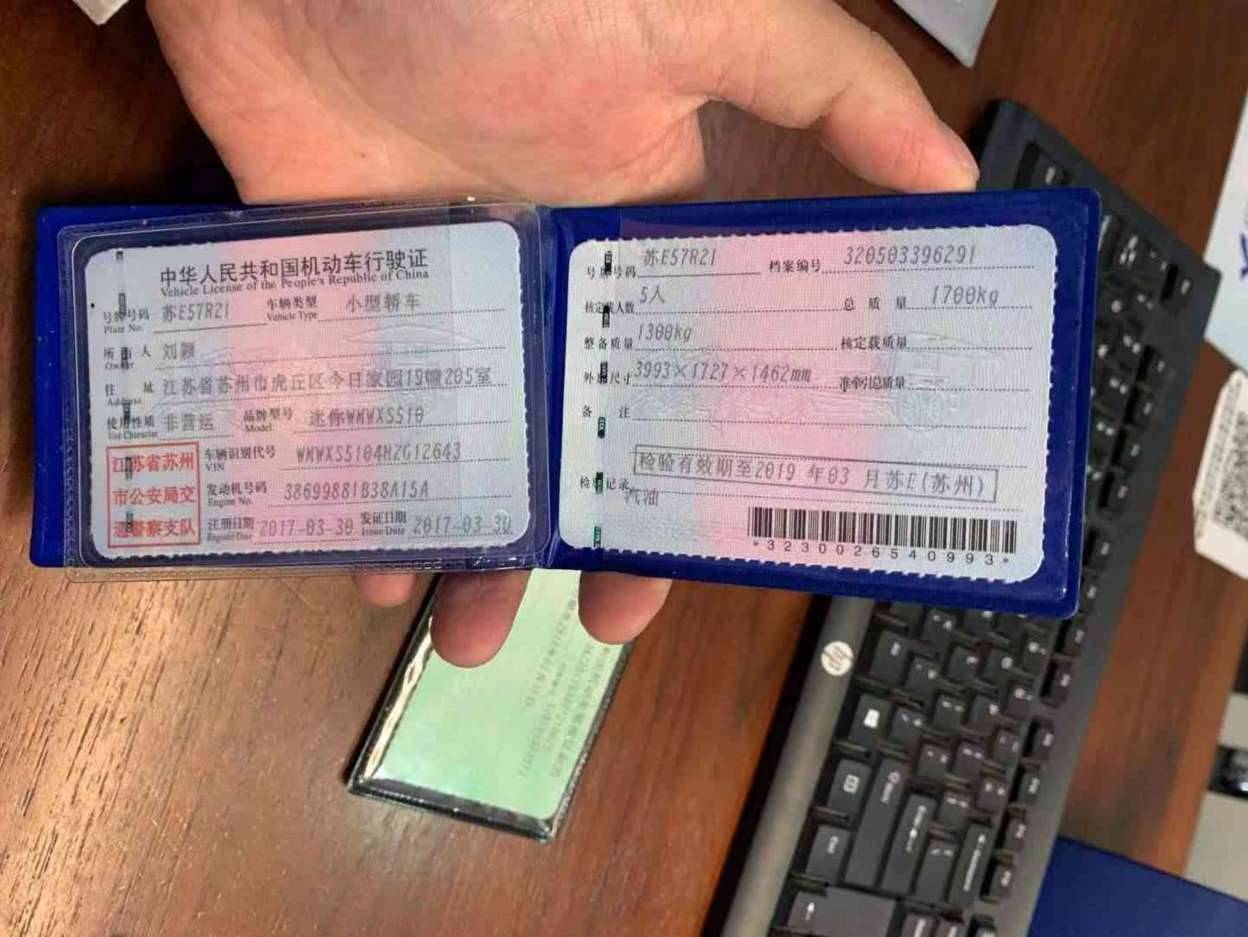 中华人民共和国机动车行驶证
Vehicle License of the People's Republic of China
号牌号码 苏E57R21 车辆类型 小型轿车
Plate No. Vehicle Type
所有人 刘颖
Owner
住 址 江苏省苏州市虎丘区今日家园19幢205室
Address
使用性质 非营运 品牌型号 迷你WMWXS510
Use Character Model
江苏省苏州
市公安局交
通警察支队
车辆识别代号 WMWXS5104H2G12643
VIN
发动机号码 38699881B38A15A
Engine No.
注册日期 2017-03-30 发证日期 2017-03-30
Register Date Issue Date
号牌号码 苏E57R21 档案编号 320503396291
核定载人数 5人 总 质 量 1700kg
整备质量 1300kg 核定载质量
外廓尺寸 3993×1727×1462mm 准牵引总质量
备 注
检验有效期至2019 年03 月苏E(苏州)
检验记录
汽油
*3230026540993*
hp